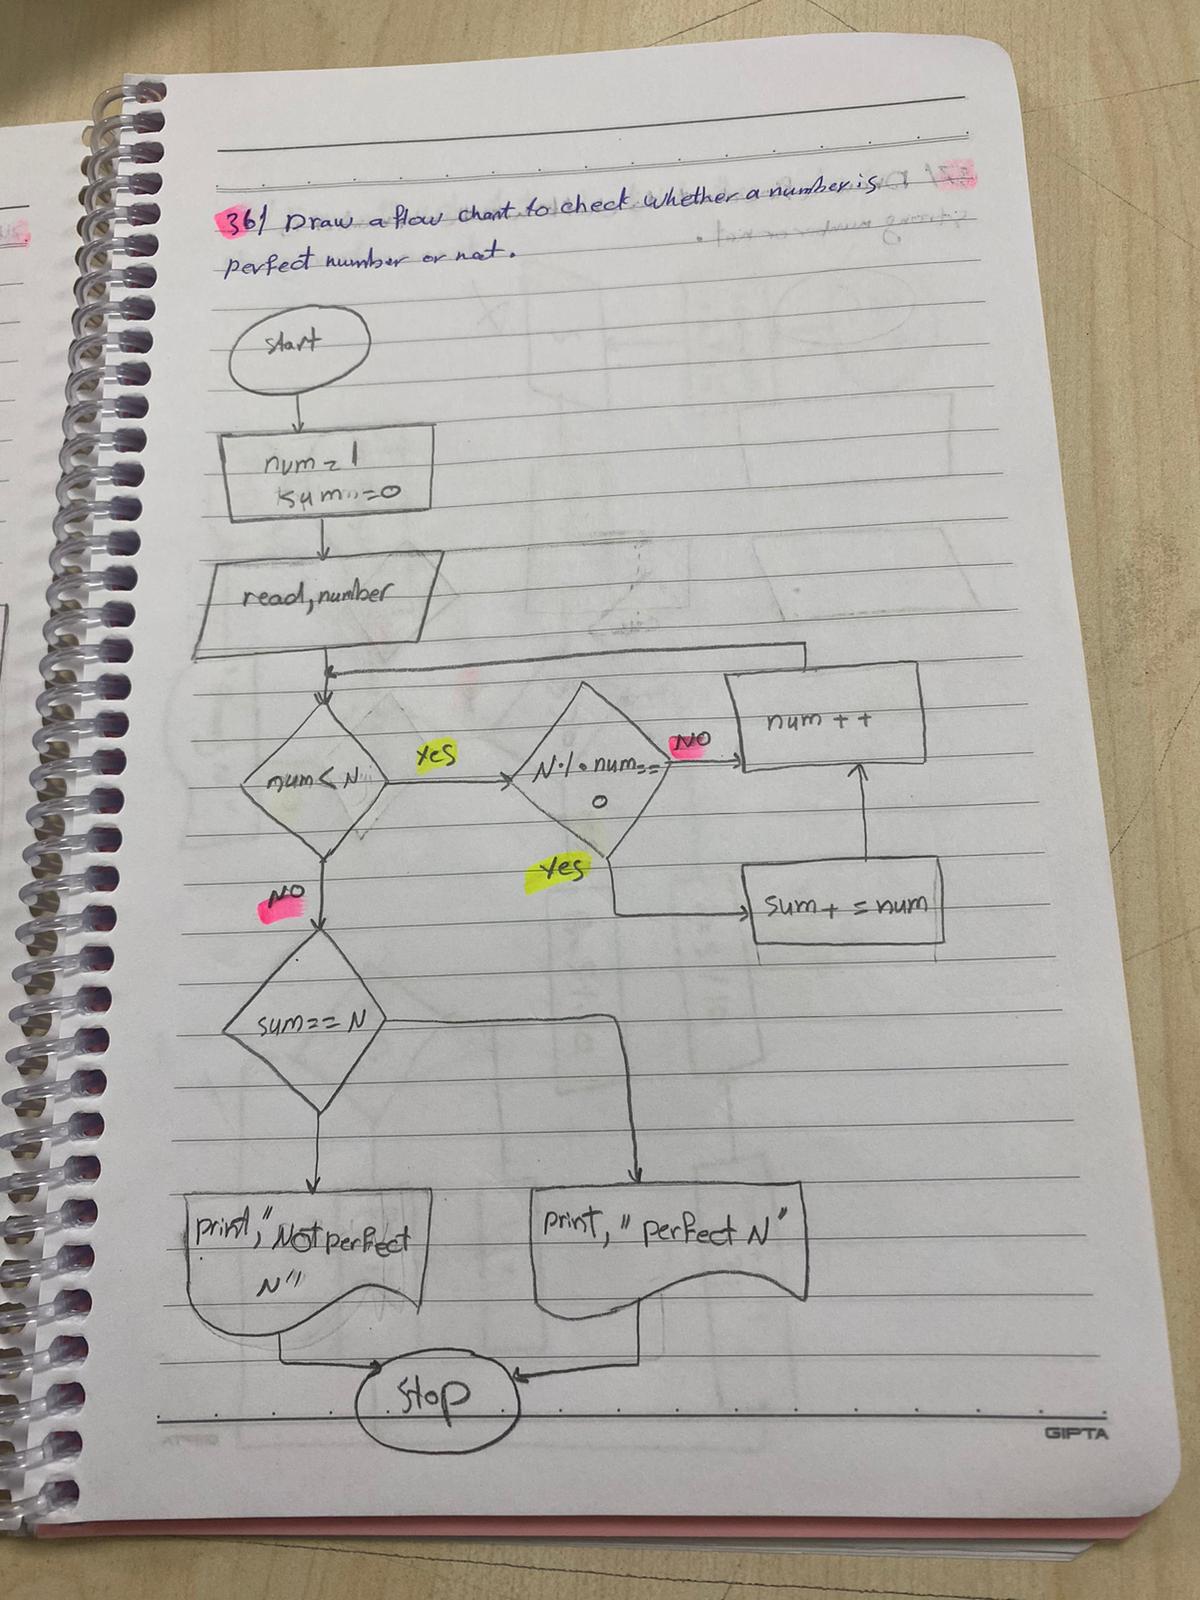 36/ Draw a flow chart to check whether a number is
perfect number or not.
start
num = 1
sum = 0
read, number
num < N
Yes
N % num ==
0
NO
num + +
Yes
sum + = num
NO
sum == N
print, "Not perfect
N"
print, " perfect N"
stop
GIPTA